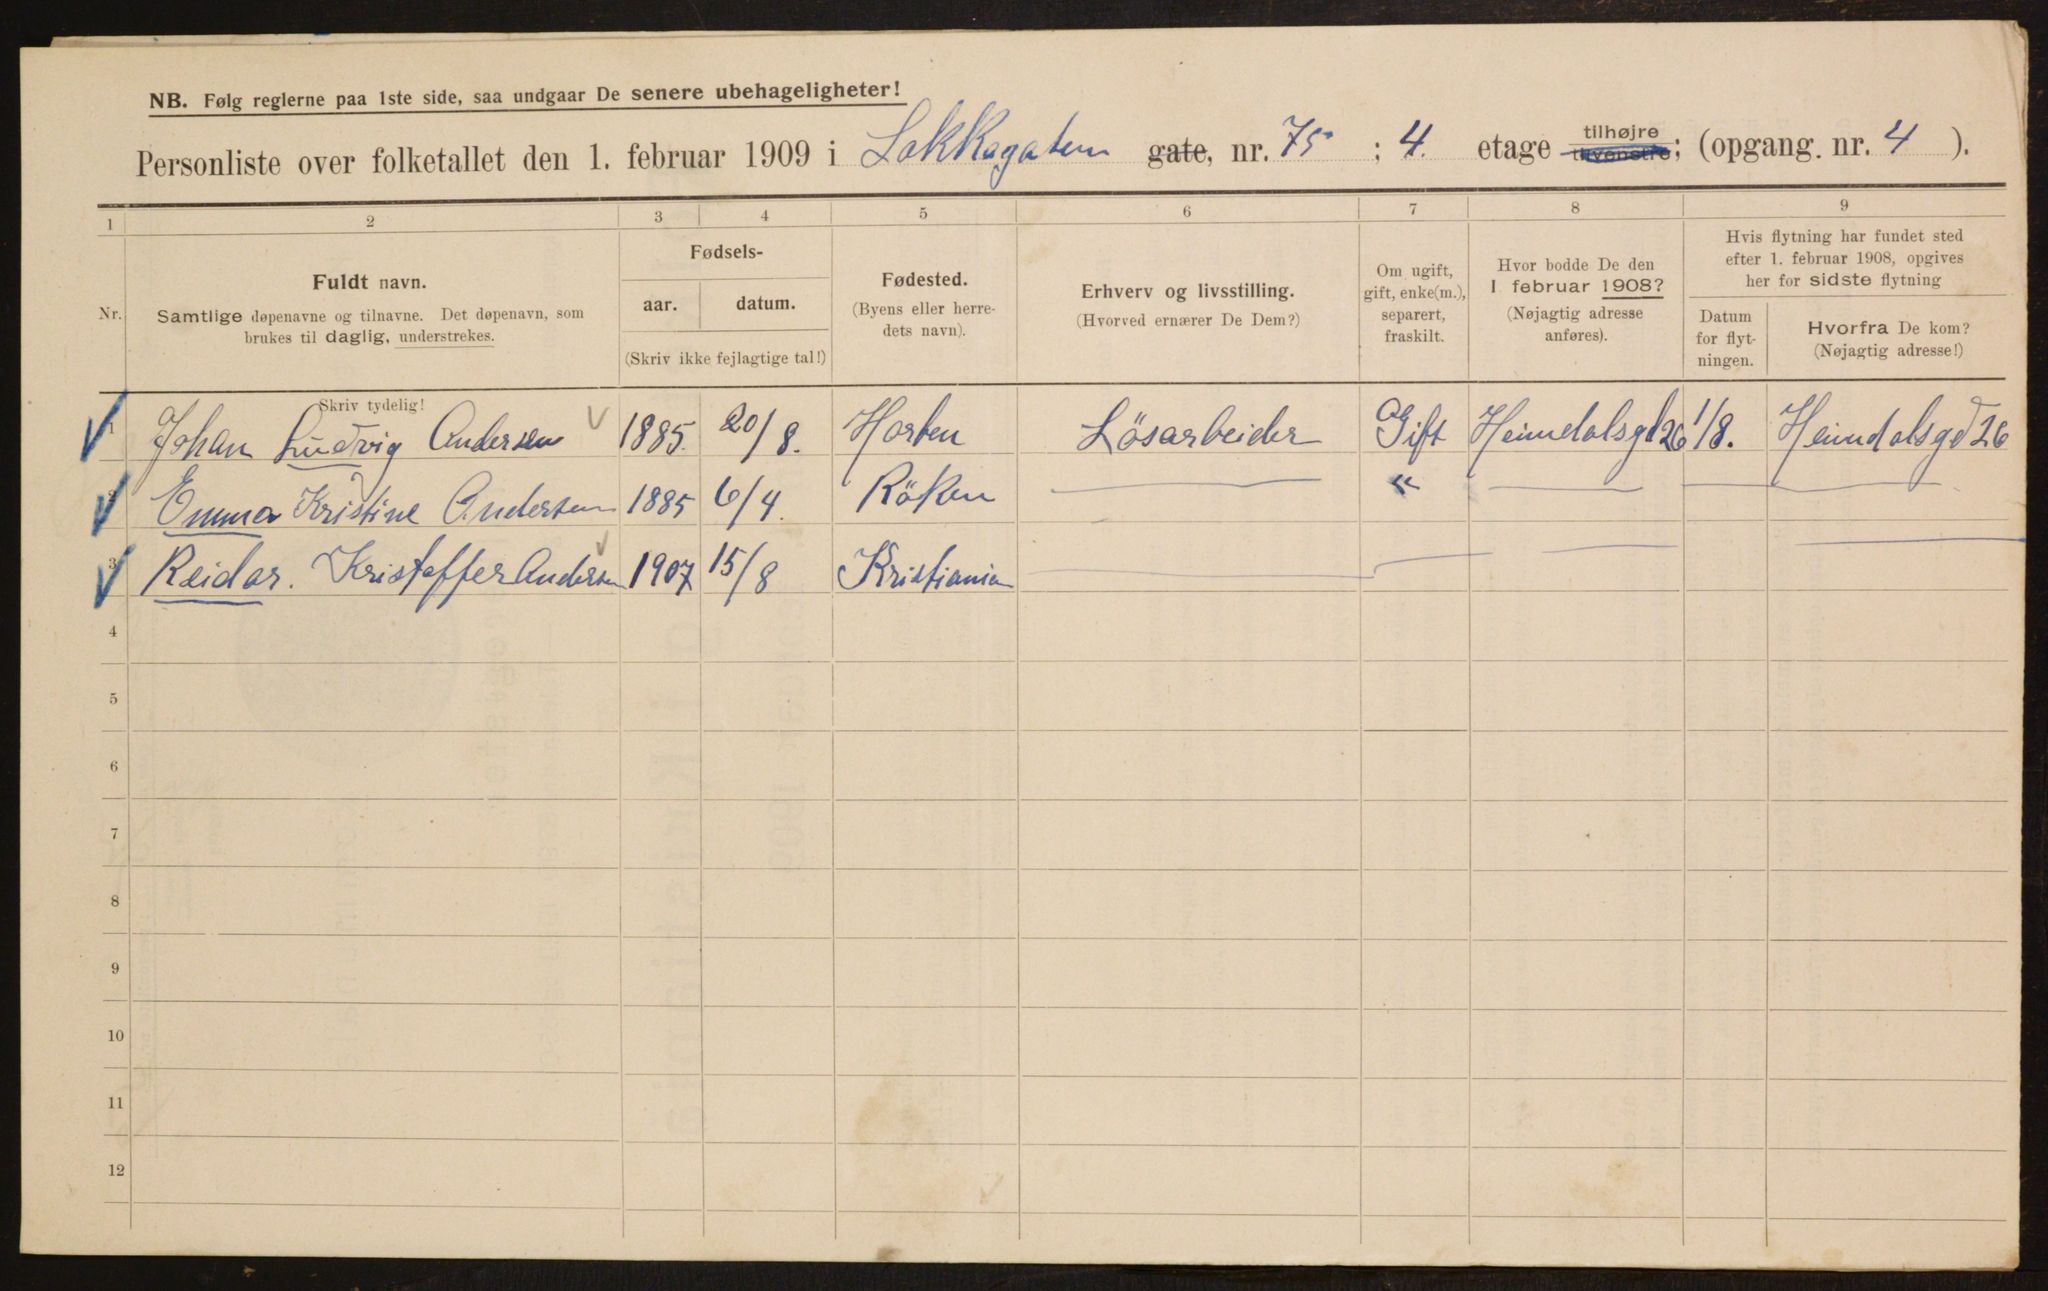 NB. Følg reglerne paa 1ste side, saa undgaar De senere ubehageligheter!
Personliste over folketallet den 1. februar 1909 i Lakkagaten gate, nr. 75 : 4. etage tilhøjre tilvenstre; (opgang. nr. 4 ).
1 2 3 4 5 6 7 8 9
Nr.
Fuldt navn.
Samtlige døpenavne og tilnavne. Det døpenavn, som
brukes til daglig, understrekes.
Skriv tydelig!
Fødsels-
aar. datum.
(Skriv ikke fejlagtige tal!)
Fødested.
(Byens eller herre-
dets navn).
Erhverv og livsstilling.
(Hvorved ernærer De Dem?)
Om ugift,
gift, enke(m.),
separert,
fraskilt.
Hvor bodde De den
1 februar 1908?
(Nøjagtig adresse
anføres).
Hvis flytning har fundet sted
efter 1. februar 1908, opgives
her for sidste flytning
Datum
for flyt-
ningen.
Hvorfra De kom?
(Nøjagtig adresse!)
1 Johan Ludvig Andersen 1885. 20/8. Horten Lösarbeider Gift Heimdalsgd 26 1/8. Heimdalsgd 26
2 Emma Kristine Andersen 1885 6/4. Röken — " — — —
3 Reidar. Kristoffer Andersen 1907 15/8 Kristiania — — — —
4
5
6
7
8
9
10
11
12